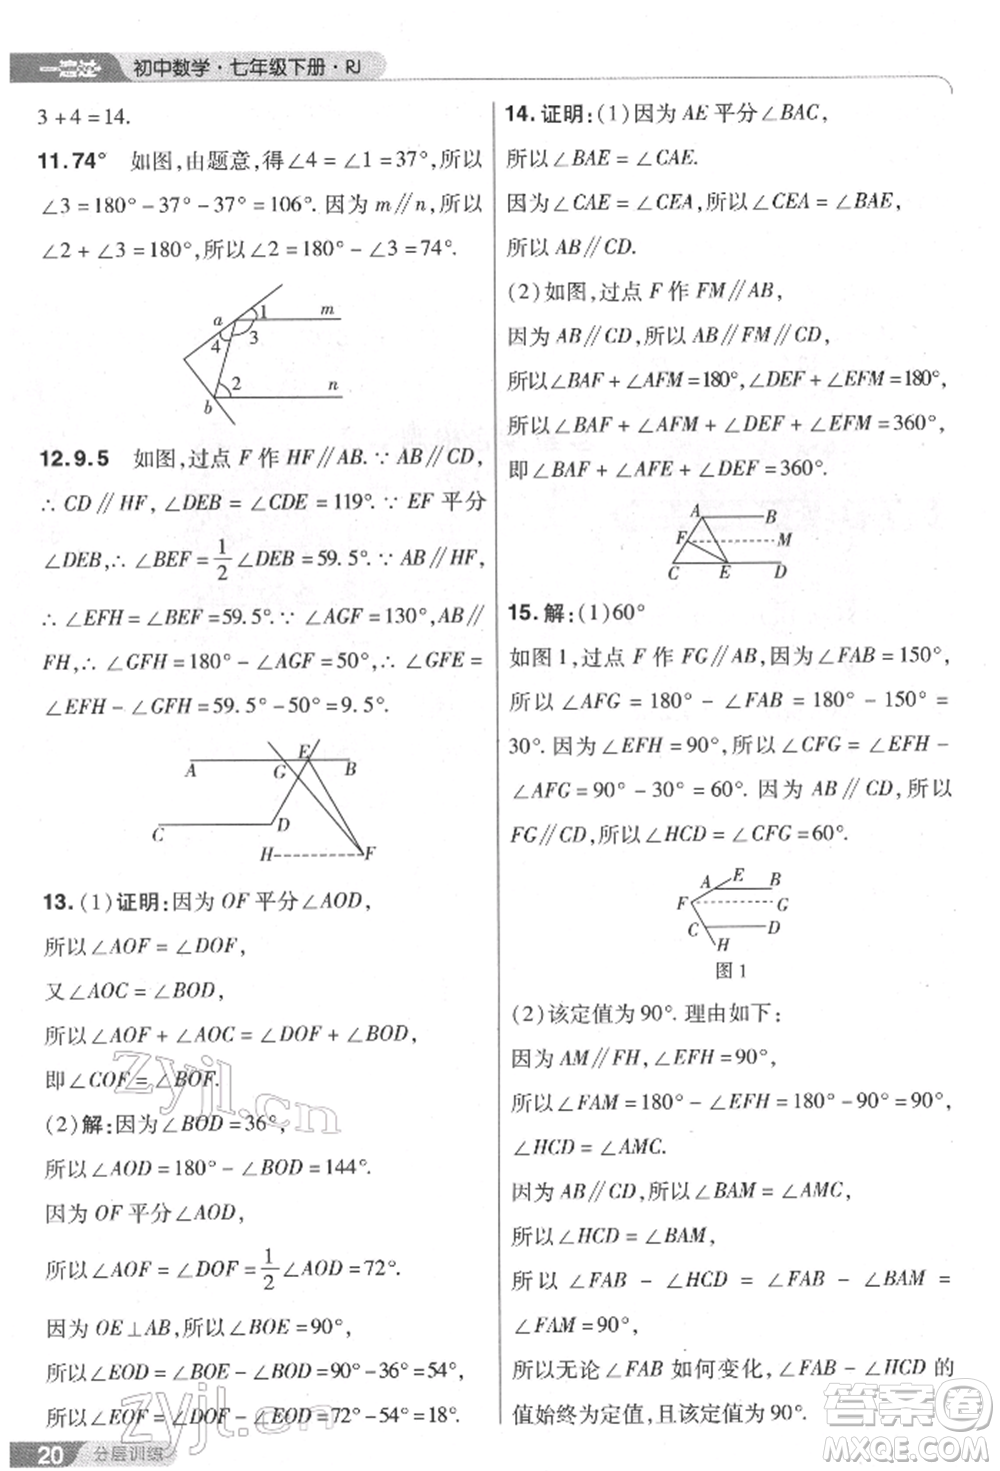 一遍过 初中数学·七年级下册·RJ
3+4=14.
11.74° 如图,由题意,得∠4=∠1=37°,所以
∠3=180°-37°-37°=106°.因为m∥n,所以
∠2+∠3=180°,所以∠2=180°-∠3=74°.
a 1 m
4 3
2 n
b
12.9.5 如图,过点F作HF∥AB.∵AB∥CD,
∴CD∥HF,∠DEB=∠CDE=119°.∵EF平分
∠DEB,∴∠BEF=1/2∠DEB=59.5°.∵AB∥HF,
∴∠EFH=∠BEF=59.5°.∵∠AGF=130°,AB∥
FH,∴∠GFH=180°-∠AGF=50°,∴∠GFE=
∠EFH-∠GFH=59.5°-50°=9.5°.
A G E B
C D
H F
13.(1)证明:因为OF平分∠AOD,
所以∠AOF=∠DOF,
又∠AOC=∠BOD,
所以∠AOF+∠AOC=∠DOF+∠BOD,
即∠COF=∠BOF.
(2)解:因为∠BOD=36°,
所以∠AOD=180°-∠BOD=144°.
因为OF平分∠AOD,
所以∠AOF=∠DOF=1/2∠AOD=72°.
因为OE⊥AB,所以∠BOE=90°,
所以∠EOD=∠BOE-∠BOD=90°-36°=54°,
所以∠EOF=∠DOF-∠EOD=72°-54°=18°.
20 分层训练
14.证明:(1)因为AE平分∠BAC,
所以∠BAE=∠CAE.
因为∠CAE=∠CEA,所以∠CEA=∠BAE,
所以AB∥CD.
(2)如图,过点F作FM∥AB,
因为AB∥CD,所以AB∥FM∥CD,
所以∠BAF+∠AFM=180°,∠DEF+∠EFM=180°,
所以∠BAF+∠AFM+∠DEF+∠EFM=360°,
即∠BAF+∠AFE+∠DEF=360°.
A B
F M
C E D
15.解:(1)60°
如图1,过点F作FG∥AB,因为∠FAB=150°,
所以∠AFG=180°-∠FAB=180°-150°=
30°.因为∠EFH=90°,所以∠CFG=∠EFH-
∠AFG=90°-30°=60°.因为AB∥CD,所以
FG∥CD,所以∠HCD=∠CFG=60°.
A E B
F G
C D
H
图1
(2)该定值为90°.理由如下:
因为AM∥FH,∠EFH=90°,
所以∠FAM=180°-∠EFH=180°-90°=90°,
∠HCD=∠AMC.
因为AB∥CD,所以∠BAM=∠AMC,
所以∠HCD=∠BAM,
所以∠FAB-∠HCD=∠FAB-∠BAM=
∠FAM=90°,
所以无论∠FAB如何变化,∠FAB-∠HCD的
值始终为定值,且定值为90°.
zyjl.cn
zyjl.cn
答案圈
MXQE.COM